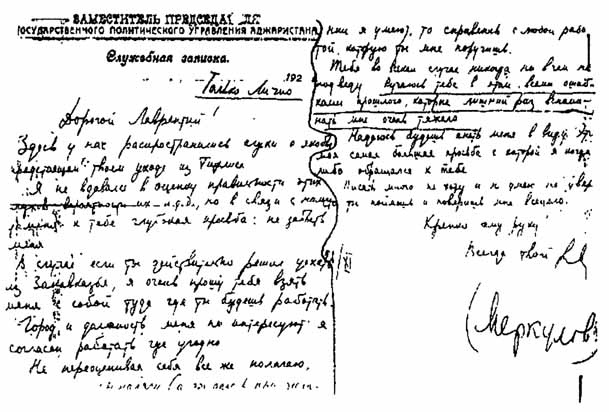 ЗАМЕСТИТЕЛЬ ПРЕДСЕДАТЕЛЯ
ГОСУДАРСТВЕННОГО ПОЛИТИЧЕСКОГО УПРАВЛЕНИЯ АДЖАРИСТАНА
Служебная записка.
192
Только Лично
Дорогой Лаврентий!
Здесь у нас распространились слухи о якобы
предстоящем твоем уходе из Тифлиса
Я не вдаюсь в оценку правильности этих
слухов вероятности их и.т.д., но в связи с ними
у меня к тебе глубокая просьба: не забыть
меня
В случае если ты действительно решил уехать
из Закавказья, я очень прошу тебя взять
меня с собой туда где ты будешь работать.
Город и должность меня не интересуют я
согласен работать где угодно
Не переоценивая себя все же полагаю,
ния я умею), то справлюсь с любой рабо
той которую ты мне поручишь.
Тебя во всяком случае никогда ни в чем не
подведу Ручаюсь тебе в этом всеми ошиб
ками прошлого, которые лишний раз вспоми
нать мне очень тяжело
Надеюсь будешь иметь меня в виду. Эта
моя самая большая просьба с которой я когда
либо обращался к тебе
Писать много не хочу и не умею но увер
ты поймешь и поверишь мне всецело.
Крепко жму руку
Всегда твой
(Меркулов)